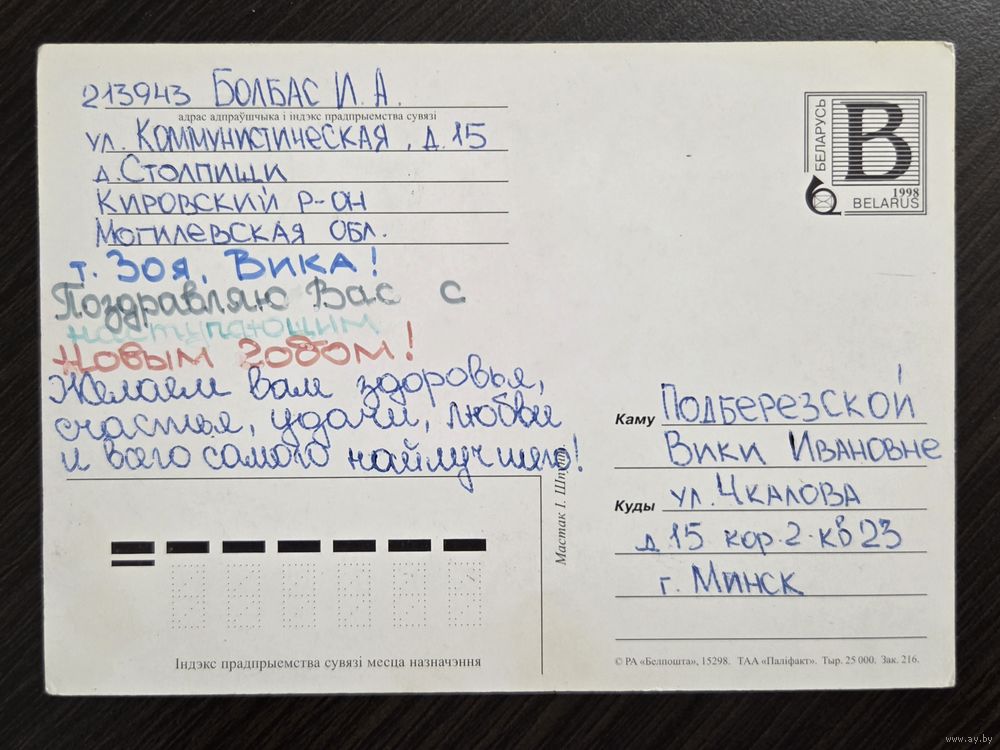 213943 Болбас И. А.
адрас адпраўшчыка і індэкс прадпрыемства сувязі
ул. Коммунистическая, д. 15
д. Столпищи
Кировский р-он
Могилевская обл.
т. Зоя, Вика!
Поздравляю Вас с
наступающим
Новым годом!
Желаем вам здоровья,
счастья, удачи, любви
и всего самого найлучшего!
Індэкс прадпрыемства сувязі месца назначэння
Мастак І. Шпунт
БЕЛАРУСЬ
B
1998
BELARUS
Каму Подберезской
Вики Ивановне
Куды ул. Чкалова
д 15 кор. 2. кв 23
г. Минск
© РА «Белпошта», 15298. ТАА «Паліфакт». Тыр. 25 000. Зак. 216.
www.ay.by